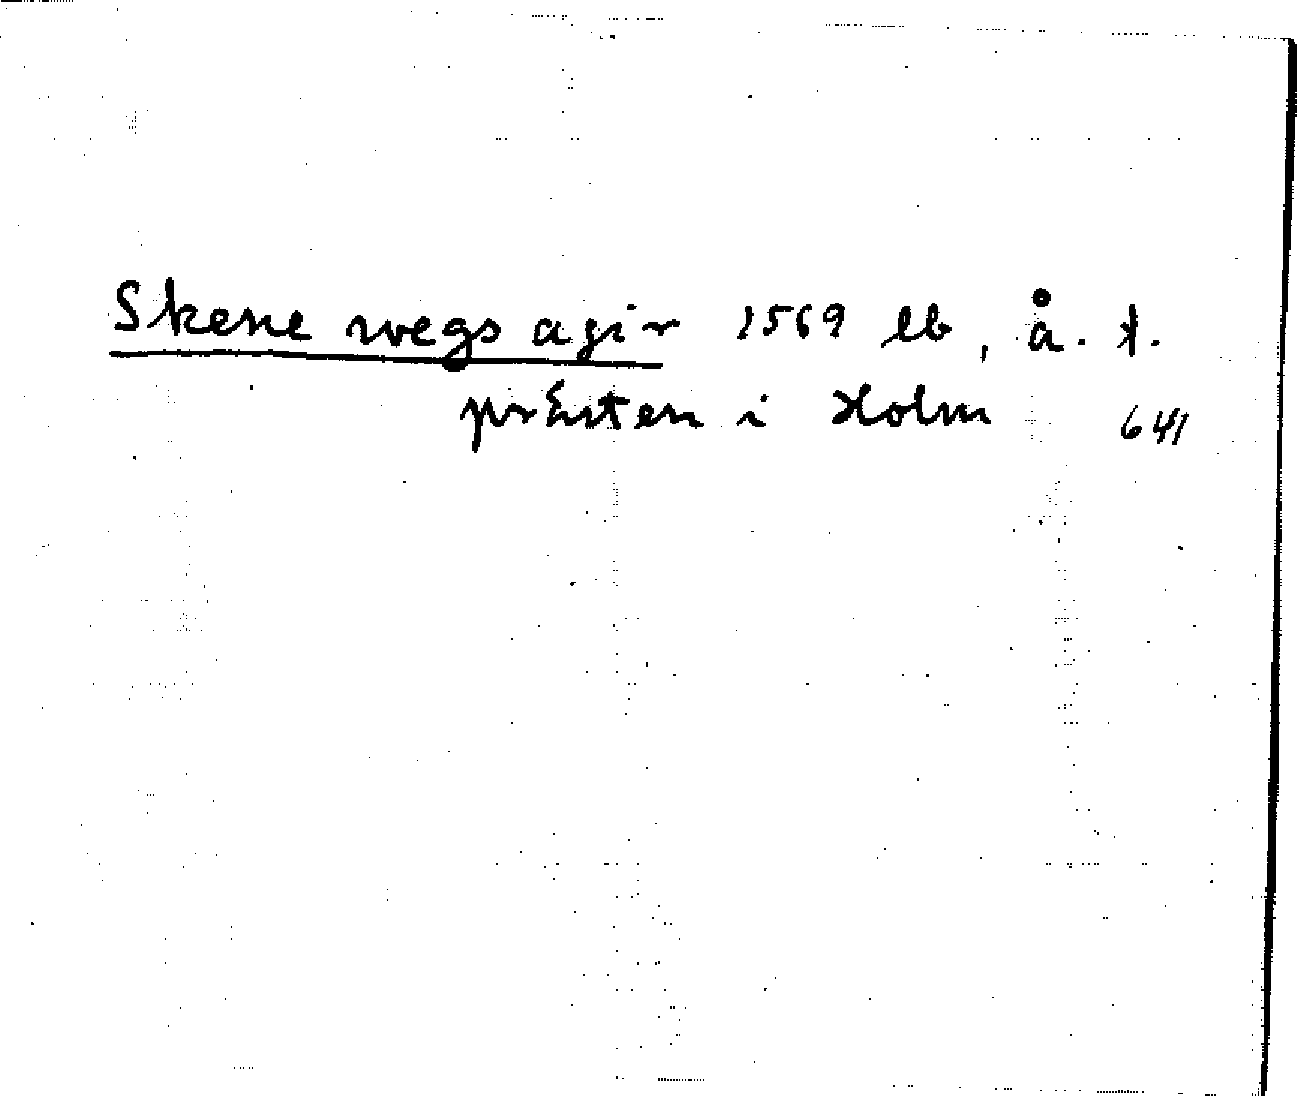 Skene wegs agir 1569 lb, å. t.
prästen i Holm 641